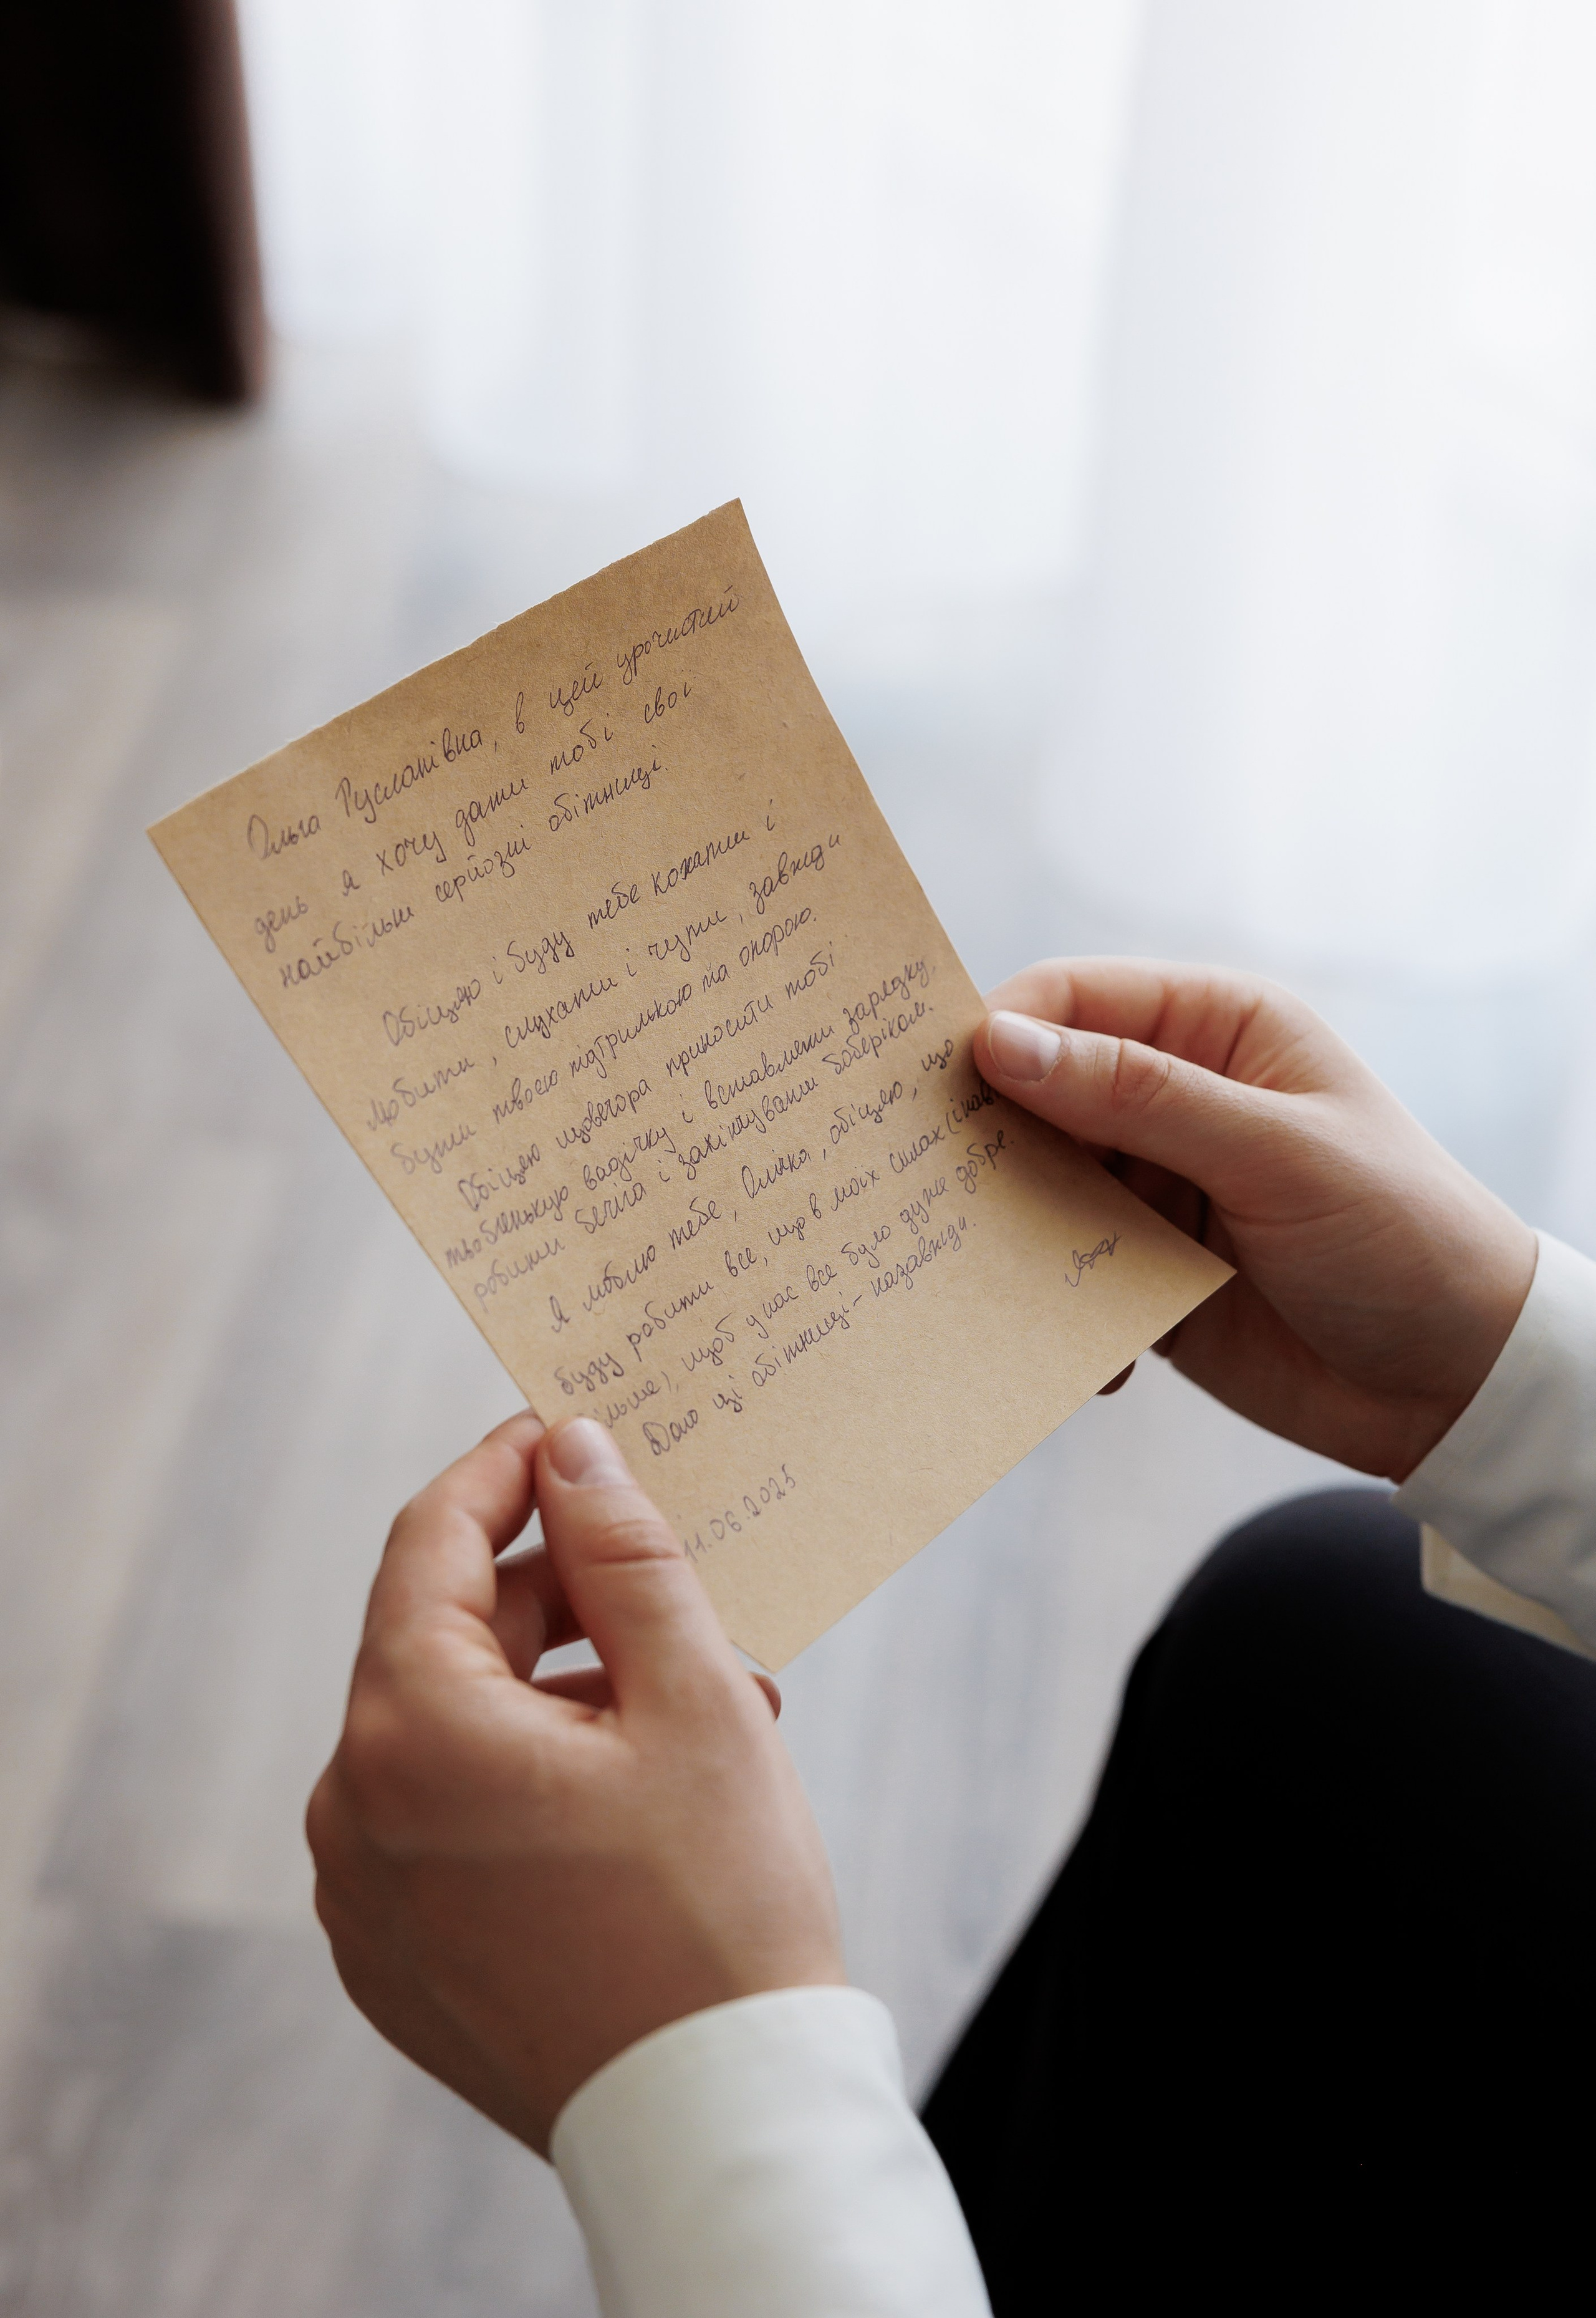 Ольга Русланівна, в цей урочистий
день я хочу дати тобі свої
найбільш серйозні обітниці.
Обіцяю і буду тебе кохати і
любити, слухати і чути, завжди
бути твоєю підтримкою та опорою.
Обіцяю щовечора приносити тобі
тьобленькую вадічку і вставляти зарядку,
робити бечіга і закінчувати боберіком.
Я люблю тебе, Олічка, обіцяю, що
буду робити все, що в моїх силах (і нав
ільше), щоб у нас все було дуже добре.
Даю ці обітниці - назавжди.
11.06.2025